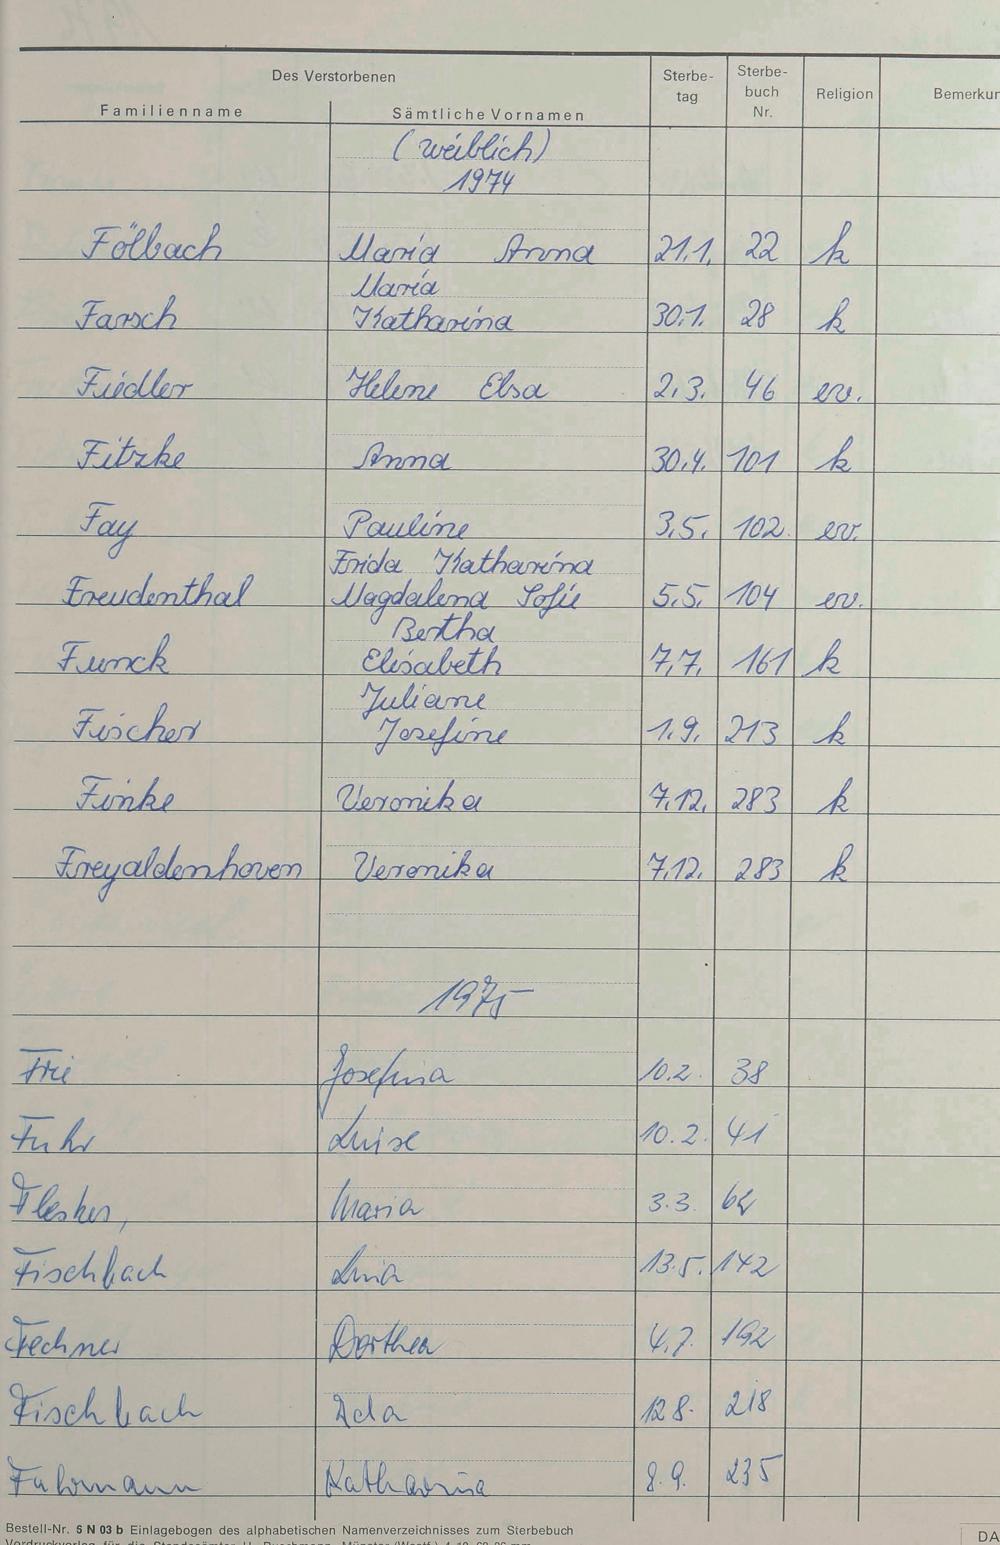 Des Verstorbenen
Familienname Sämtliche Vornamen Sterbe-tag Sterbe-buch Nr. Religion Bemerkun
(weiblich)
1974
Fölbach Maria Anna 21.1. 22 k
Maria
Farsch Katharina 30.1. 28 k
Fiedler Helene Elsa 2.3. 46 ev.
Fitzke Anna 30.4. 101 k
Fay Pauline 3.5. 102 ev.
Frida Katharina
Freudenthal Magdalena Sofie 5.5. 104 ev.
Bertha
Funck Elisabeth 7.7. 161 k
Juliane
Fischer Josefine 1.9. 213 k
Finke Veronika 7.12. 283 k
Freyaldenhoven Veronika 7.12. 283 k
1975
Frie Josefina 10.2. 38
Fuhr Luise 10.2. 41
Maria 3.3.
Fischbach 13.5. 142
Fechner Dorthea 4.7. 192
Fischbach 12 8. 218
Fuhrmann Katharina 8.9. 235
Bestell-Nr. 5 N 03 b Einlagebogen des alphabetischen Namenverzeichnisses zum Sterbebuch
DA